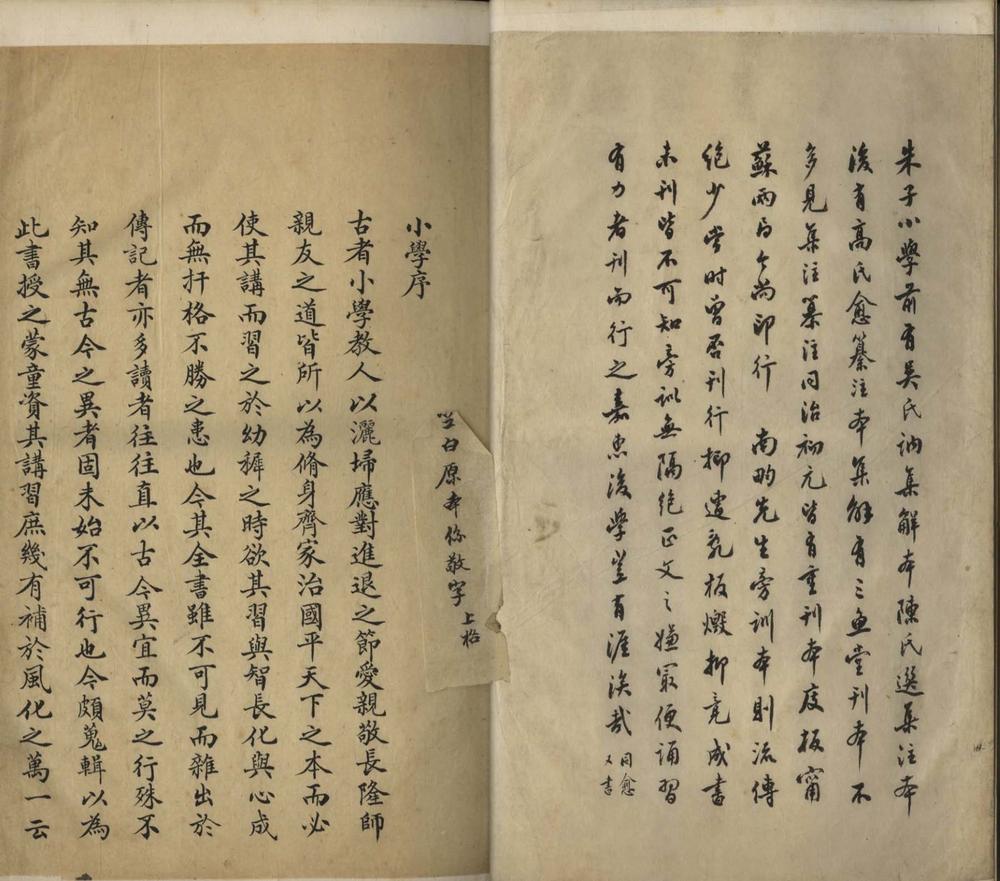 朱子小學前有吳氏訥集解本陳氏選集注本
後有高氏愈纂注本集解有三魚堂刊本不
多見集注纂注同治初元皆有重刊本庋板甯
蘇兩局今尚印行 南畇先生旁訓本則流傳
絕少當时曾否刊行抑遭亂板燬抑竟成書
未刊皆不可知旁訓無隔絕正文之嫌最便誦習
有力者刊而行之嘉惠後學豈有涯涘哉 同愈
又書
上格
空白原本係敬字
小學序
古者小學教人以灑埽應對進退之節愛親敬長隆師
親友之道皆所以為脩身齊家治國平天下之本而必
使其講而習之於幼穉之時欲其習與智長化與心成
而無扞格不勝之患也今其全書雖不可見而雜出於
傳記者亦多讀者往往直以古今異宜而莫之行殊不
知其無古今之異者固未始不可行也今頗蒐輯以為
此書授之蒙童資其講習庶幾有補於風化之萬一云